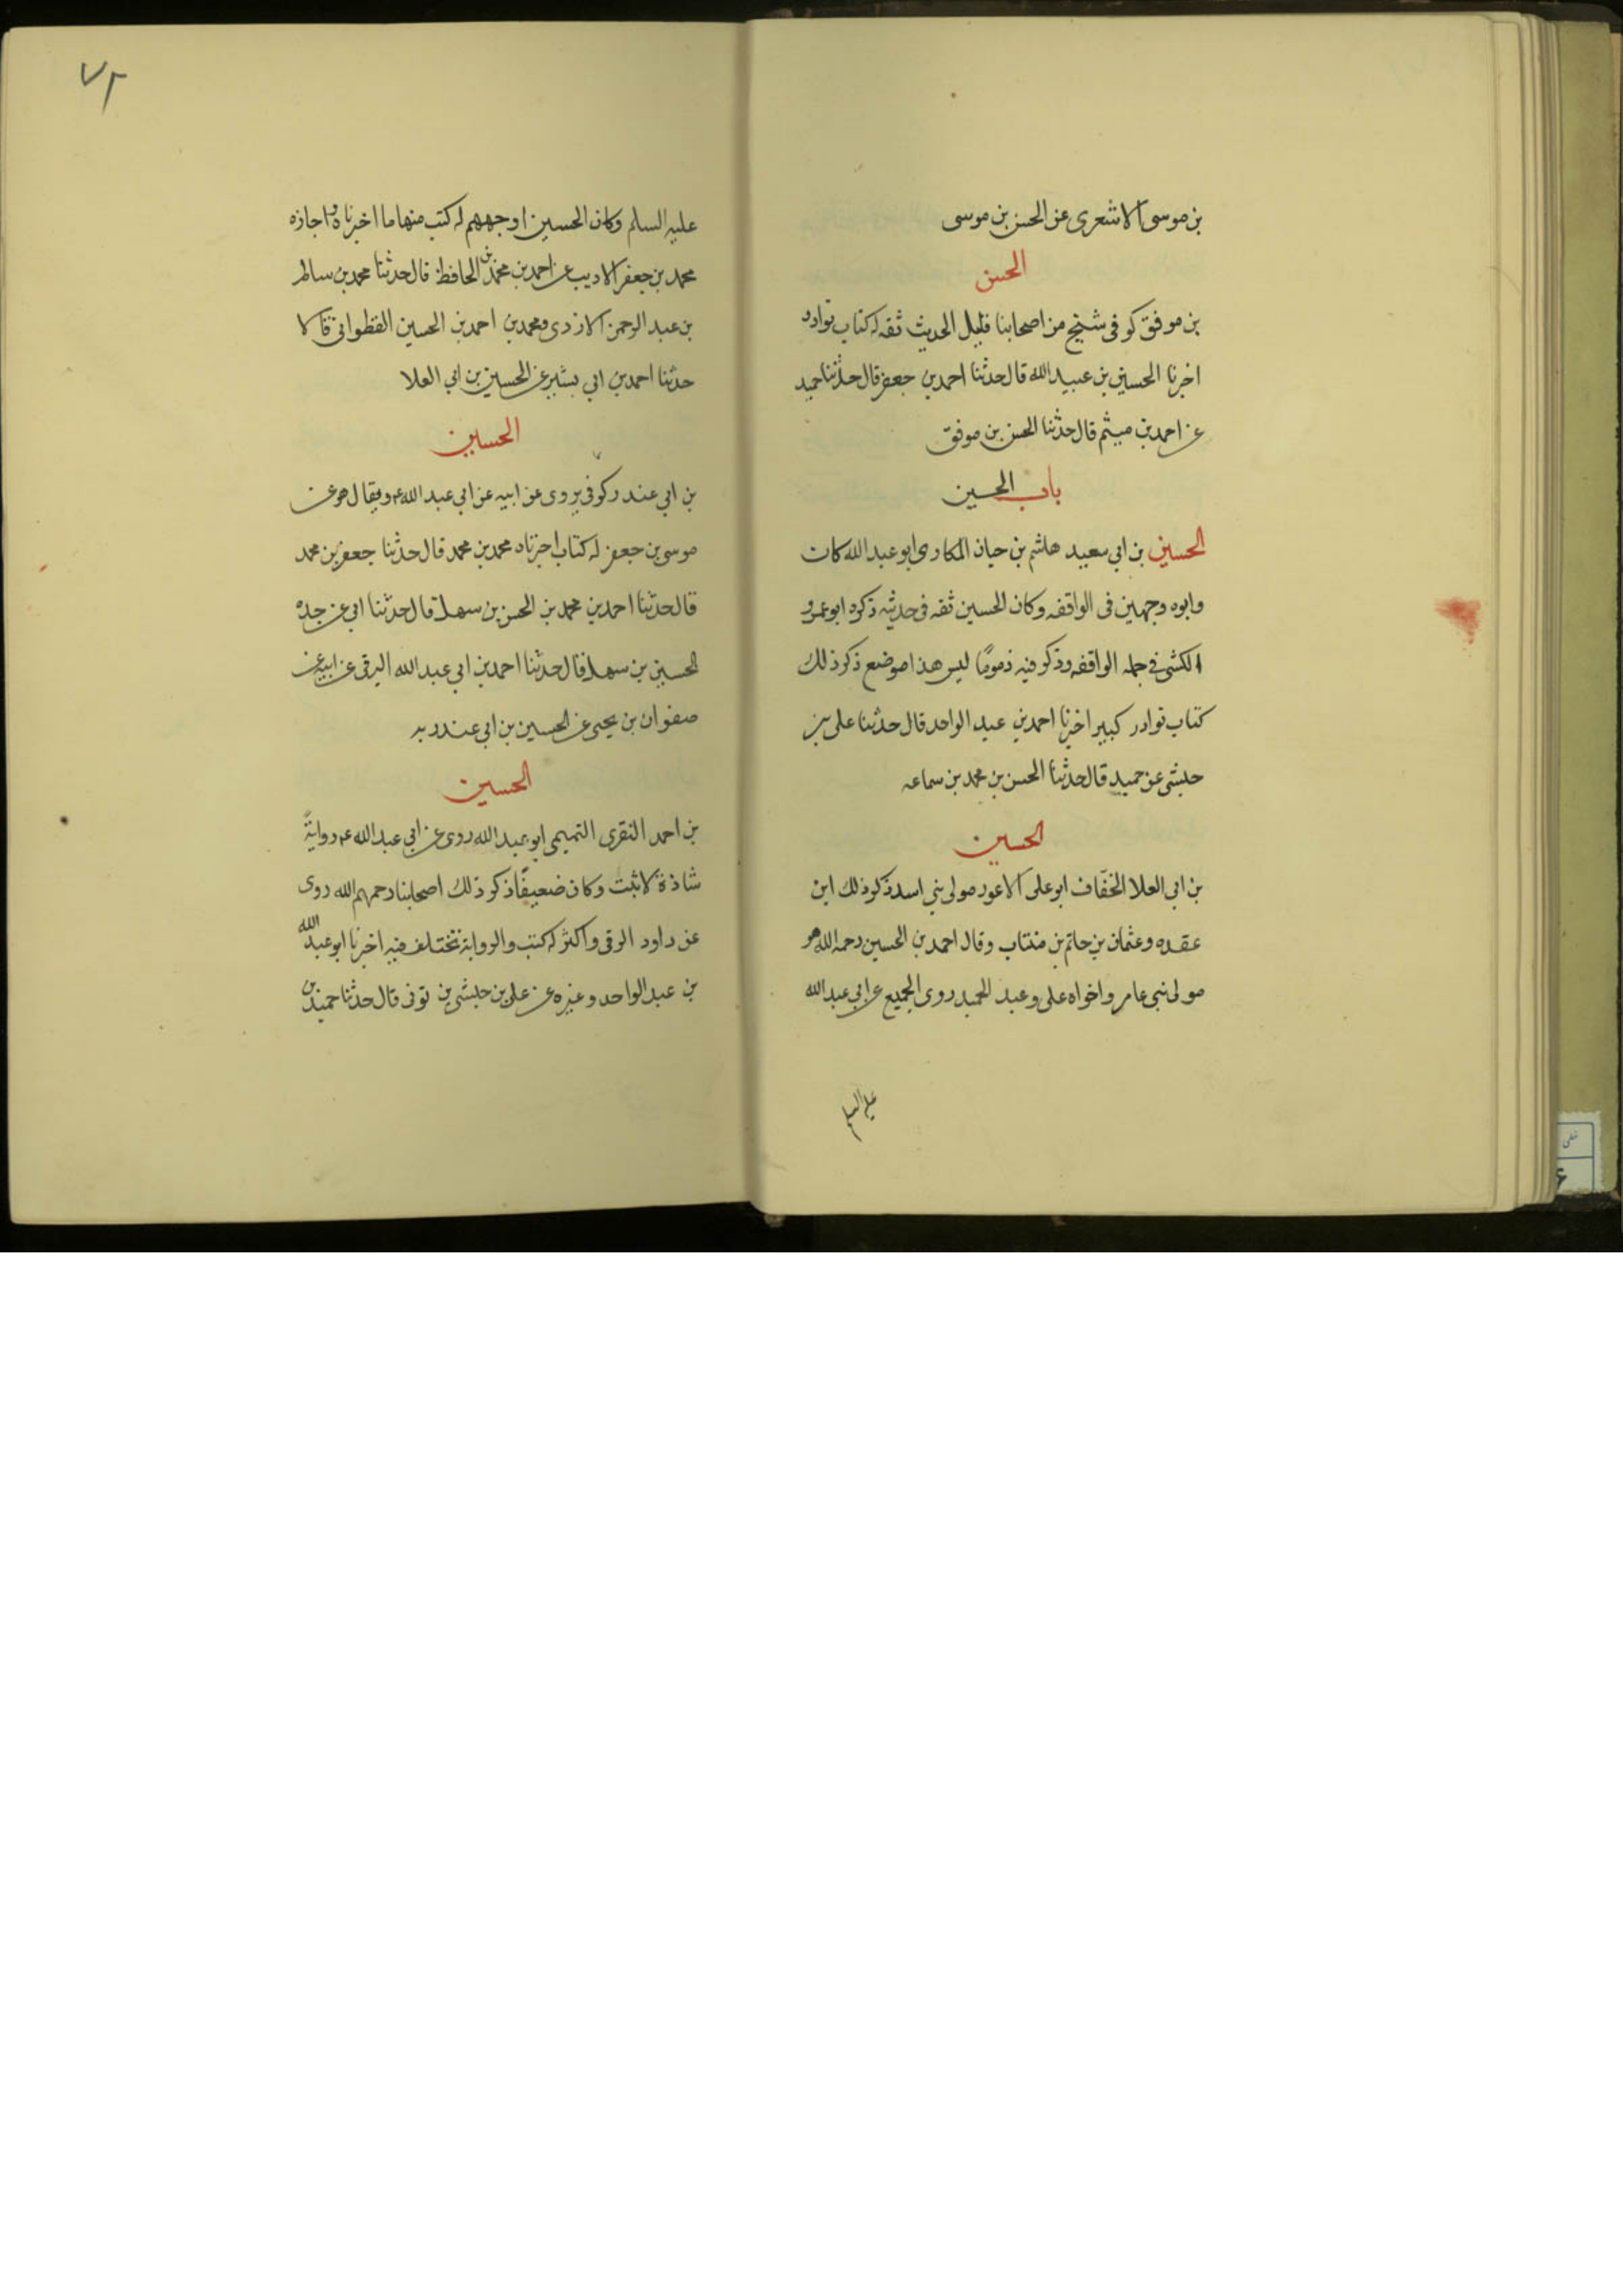 بن موسى الاشعرى عن الحسن بن موسى
الحسن
بن موفق كوفى شيخ من اصحابنا قليل الحديث ثقه له كتاب نوادر
اخبرنا الحسين بن عبيد الله قال حدثنا احمد بن جعفر قال حدثنا حميد
عن احمد بن ميثم قال حدثنا الحسن بن موفق
باب الحسين
الحسين بن ابى سعيد هاشم بن حيان المكارى ابو عبد الله كان
وابوه وجهين فى الواقفه وكان الحسين ثقه فى حديثه ذكره ابو عمرو
الكشى فى جمله الواقفه وذكر فيه ذمومًا ليس هذا موضع ذكر ذلك
كتاب نوادر كبير اخبرنا احمد بن عبد الواحد قال حدثنا على بن
حبشى عن حميد قال حدثنا الحسن بن محمد بن سماعه
الحسين
بن ابى العلا الخفّاف ابو على الاعور مولى بنى اسد ذكر ذلك ابن
عقده وعثمان بن حاتم بن منتاب وقال احمد بن الحسين رحمه الله هو
مولى بنى عامر واخواه على وعبد الحميد روى الجميع عن ابى عبد الله
عليه السلم
٧٢
عليه السلم وكان الحسين اوجههم له كتب منها ما اخبرناه واجازه
محمد بن جعفر الاديب عن احمد بن محمد بن الحافظ قال حدثنا محمد بن سالم
بن عبد الرحمن الازدى ومحمد بن احمد بن الحسين القطوانى قالا
حدثنا احمد بن ابى بشير عن الحسين بن ابى العلا
الحسين
بن ابى عندر كوفى يروى عن ابيه عن ابى عبد الله ع ويقال هو عن
موسى بن جعفر له كتاب اخبرناه محمد بن محمد قال حدثنا جعفر بن محمد
قال حدثنا احمد بن محمد بن الحسن بن سهل قال حدثنا ابى عن جده
الحسين بن سهل قال حدثنا احمد بن ابى عبد الله البرقى عن ابيه عن
صفوان بن يحيى عن الحسين بن ابى عندر به
الحسين
بن احمد النقرى التميمى ابو عبد الله روى عن ابى عبد الله ع روايةً
شاذة لا تثبت وكان ضعيفًا ذكر ذلك اصحابنا رحمهم الله روى
عن داود الرقى واكثر له كتب والرواية تختلف فيه اخبرنا ابو عبد الله
بن عبد الواحد وغيره عن على بن حبشى بن قونى قال حدثنا حميد بن